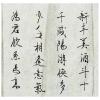 新豐美酒斗十
千咸陽遊俠多
少年相逢意氣
為君飲繫馬高